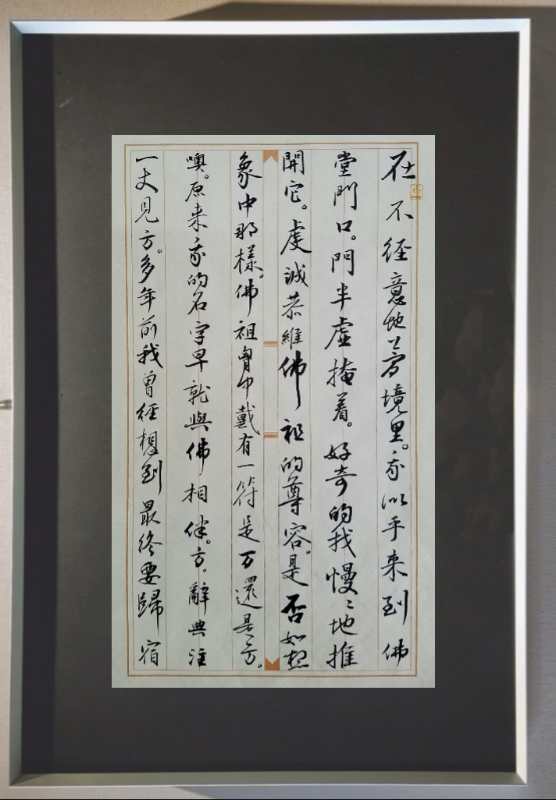 在不經意地夢境里。我似乎来到佛
堂門口。門半虛掩着。好奇的我慢〻地推
開它。虔誠恭維佛祖的尊容。是否如想
象中那樣。佛祖胷中戴有一符是万還是方。
噢。原来我的名字早就與佛相伴。方。辭典注
一丈見方。多年前我曾經想到最終要歸宿